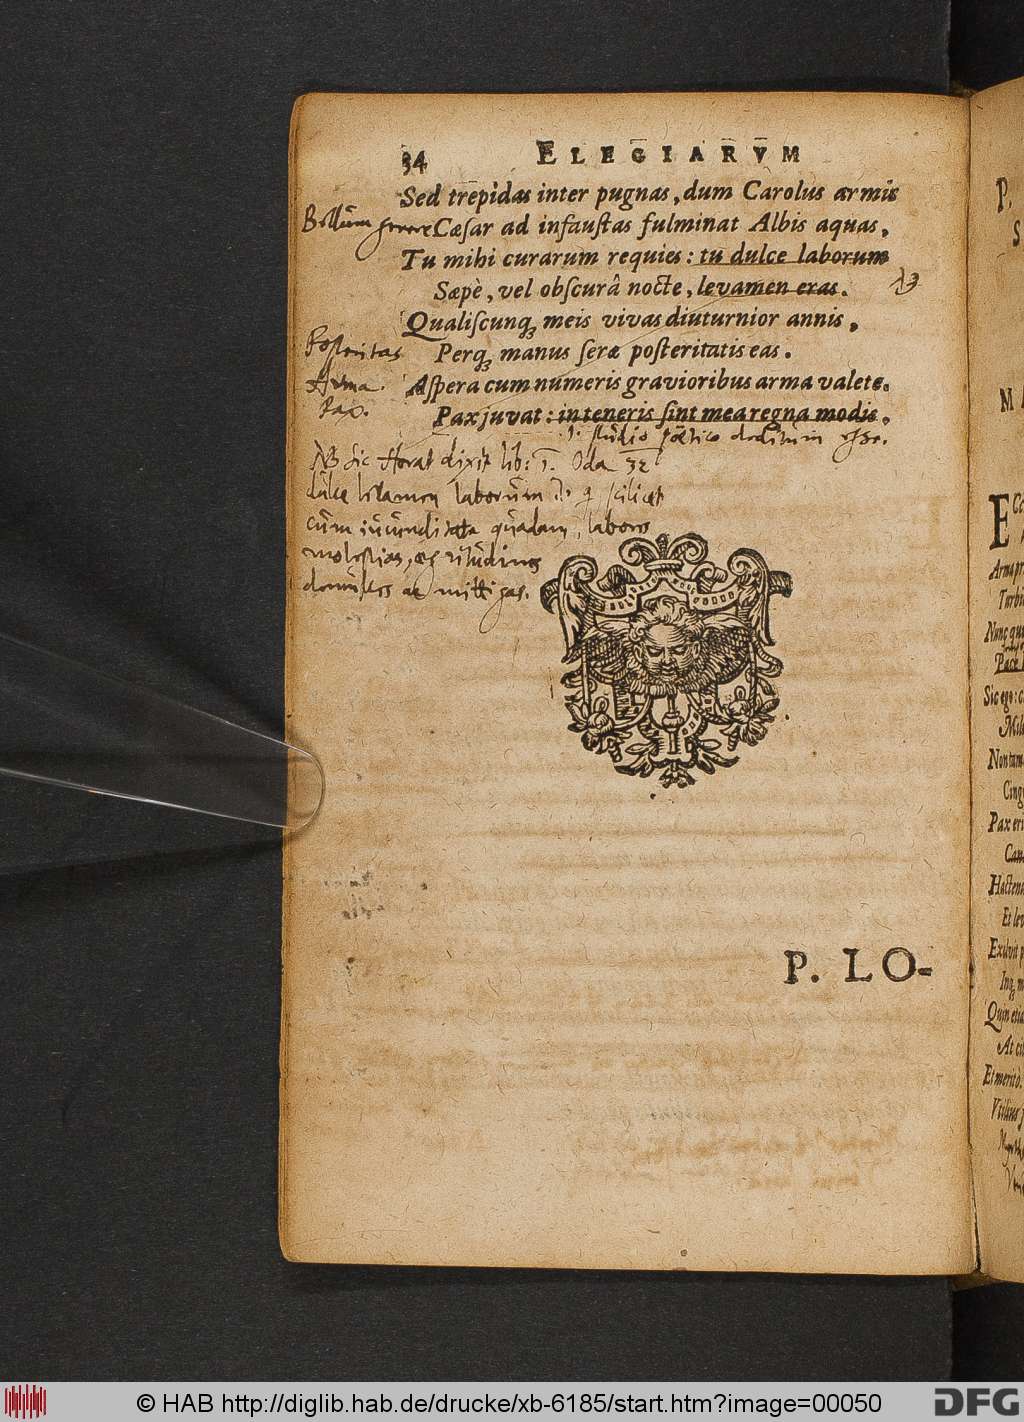 34 ELEGIARVM
Sed trepidas inter pugnas, dum Carolus armis
Bellum gerere
Cæſar ad infauſtas fulminat Albis aquas,
Tu mihi curarum requies: tu dulce laborum
Sæpè, vel obſcurâ nocte, levamen eras.
Qualiſcunq; meis vivas diuturnior annis,
Posteritas
Perq; manus ſeræ poſteritatis eas.
Arma.
Aſpera cum numeris gravioribus arma valete.
Pax.
Pax juvat: in teneris ſint mea regna modis.
studio poëtico deditum esse.
NB sic Horat dixit lib: 1. Oda 32
dulce levamen laborum scilicet
cum iucunditate quadam, labores
molestias, ægritudines
domulces ac mittigas.
P. LO-
P.
S
M A
E
Arma pr
Turbi
Nunc qu
Pace
Sic ego: c
Mil
Non tam
Cing
Pax eri
Can
Hactena
Et lev
Exiluit p
Inq; m
Quin etia
At ci
Et meritò.
Vtilius
© HAB http://diglib.hab.de/drucke/xb-6185/start.htm?image=00050
DFG